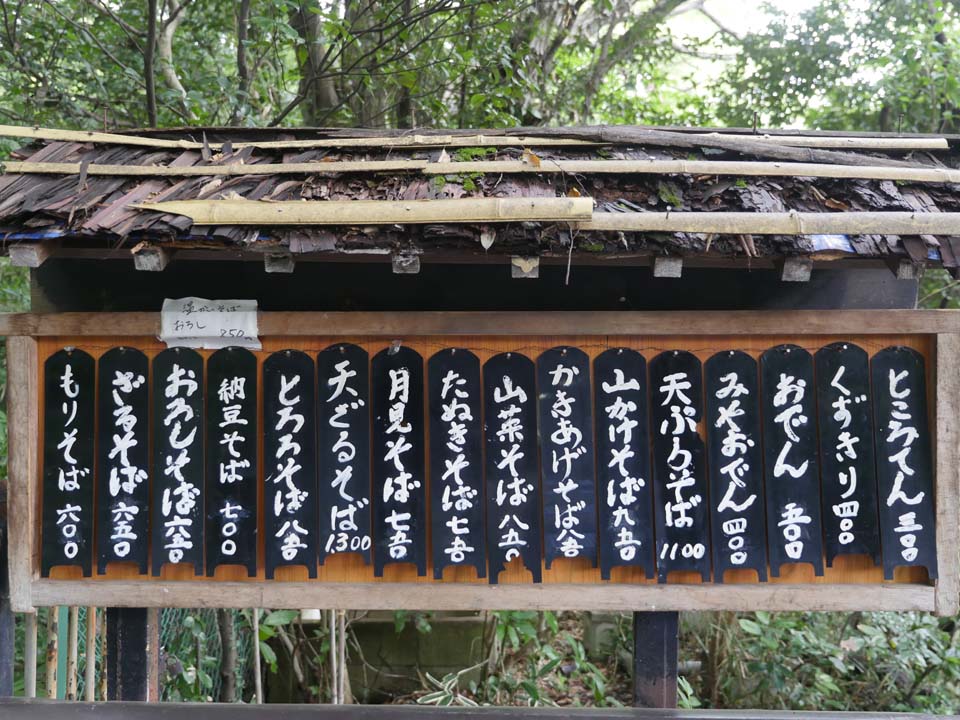 温かいそば
おろし 850
もりそば 六〇〇
ざるそば 六五〇
おろしそば 六五〇
納豆そば 七〇〇
とろろそば 八五〇
天ざるそば 1,300
月見そば 七五〇
たぬきそば 七五〇
山菜そば 八五〇
かきあげそば 八五〇
山かけそば 九五〇
天ぷらそば 1100
みそおでん 四〇〇
おでん 五〇〇
くずきり 四〇〇
ところてん 三〇〇